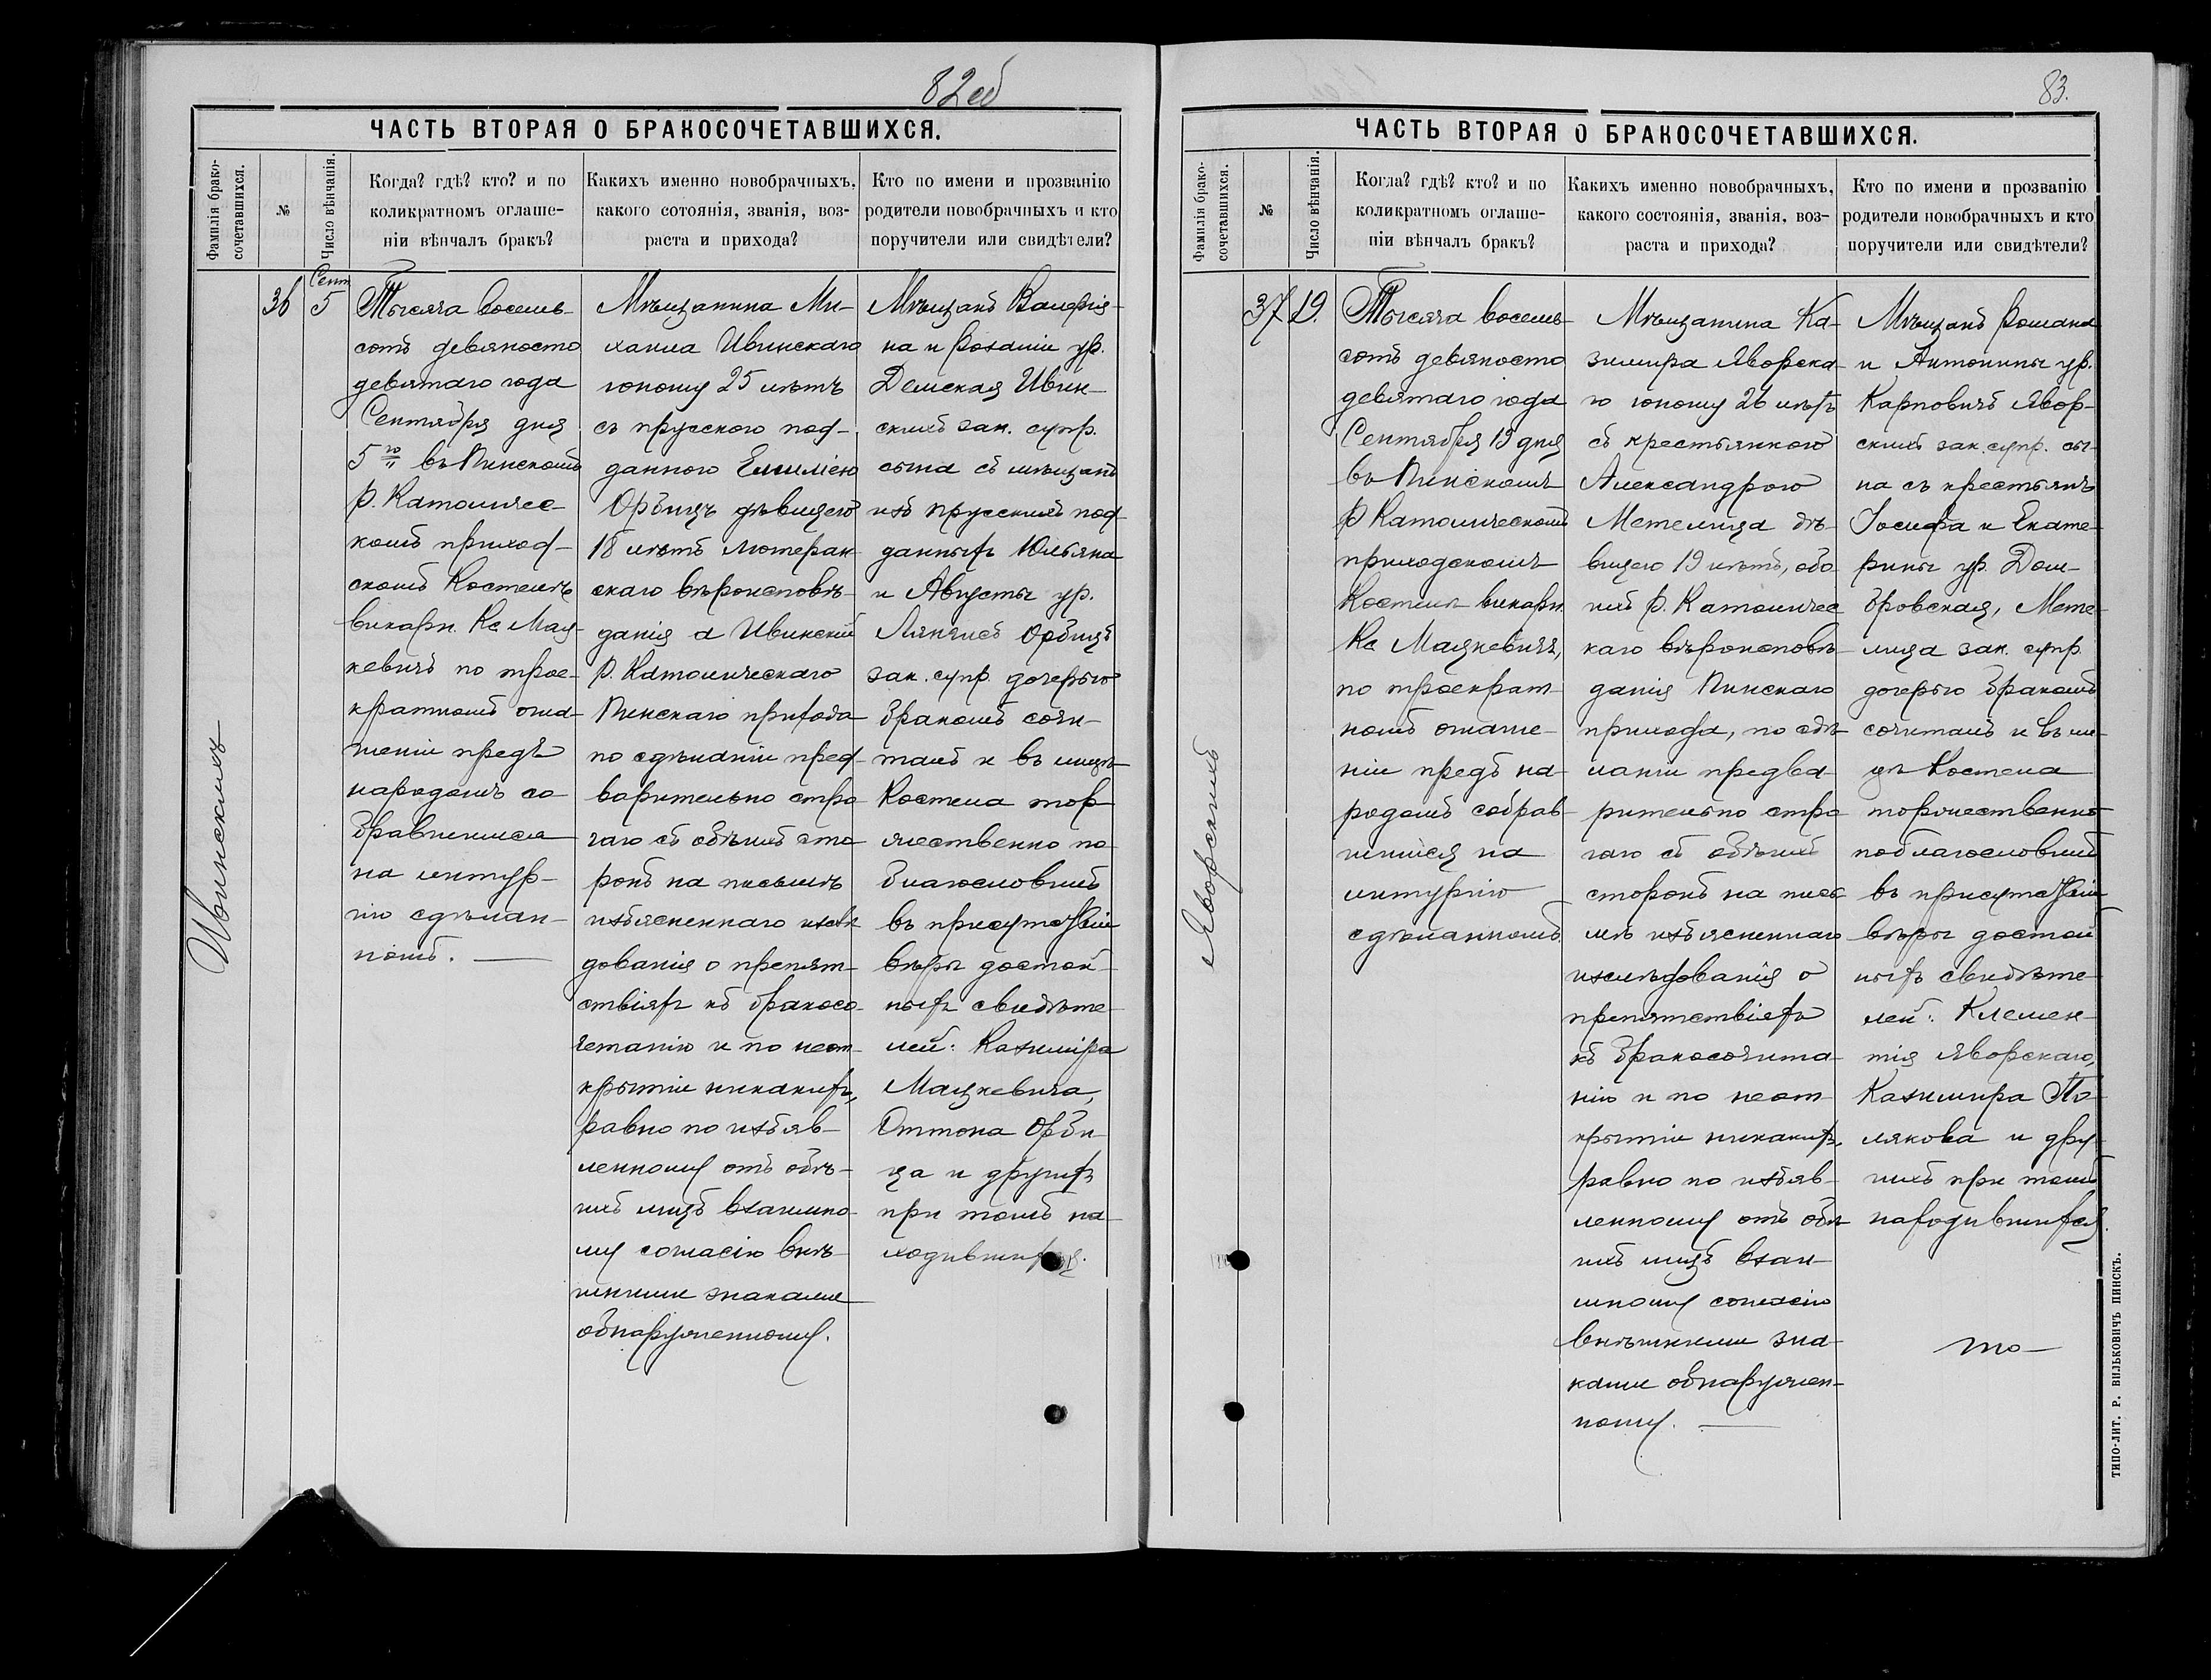 82об
ЧАСТЬ ВТОРАЯ О БРАКОСОЧЕТАВШИХСЯ.
Фамилія брако-
сочетавшихся.
№
Число вѣнчанія.
Когда? гдѣ? кто? и по
коликратномъ оглаше-
ніи вѣнчалъ бракъ?
Какихъ именно новобрачныхъ,
какого сотоянія, званія, воз-
раста и прихода?
Кто по имени и прозванію
родители новобрачныхъ и кто
поручители или свидѣтели?
Ивинскихъ
36
Сент
5
Тысяча восемь-
сотъ девяносто
девятаго года
Сентября дня
5го въ Пинскомъ
Р. Католичес-
комъ приход-
скомъ Костелѣ
викарн. Кс Мац-
кевичъ по трое-
кратномъ огла-
шеніи предъ
народомъ со-
бравшимся
на литур-
гію сдѣлан-
номъ.
Мѣщанина Ми-
хаила Ивинскаго
юношу 25 лѣтъ
съ прусскою под-
данною Емиліею
Орбицъ дѣвицею
18 лѣтъ лютеран-
скаго вѣроисповѣ-
данія а Ивинскій
Р. Католическаго
Пинскаго прихода
по сдѣланіи пред-
варительно стро
гаго съ обѣихъ сто
ронъ на письмѣ
изъясненнаго изслѣ
дованія о препят-
ствіяхъ къ бракосо-
четанію и по неот-
крытіи никакихъ,
равно по изъяв-
ленному отъ обѣ-
ихъ лицъ взаимно-
му согласію внѣ-
шними знаками
обнаруженному.
Мѣщанъ Валерія-
на и Розаліи ур.
Демская Ивин-
скихъ зак. супр.
сына съ мѣщанъ
изъ прусскихъ под-
данныхъ Юльяна
и Августы ур.
Орбицъ
зак. супр. дочерью
бракомъ сочи-
талъ и въ лицѣ
Костела тор-
жественно по-
благословилъ
въ присутствіи
вѣры достой-
ныхъ свидѣте-
лей: Казиміра
Мацкевича,
Оттона Орби-
ца и другихъ
при томъ на-
ходившихся.
83.
ЧАСТЬ ВТОРАЯ О БРАКОСОЧЕТАВШИХСЯ.
Фамилія брако-
сочетавшихся.
№
Число вѣнчанія.
Когда? гдѣ? кто? и по
коликратномъ оглаше-
ніи вѣнчалъ бракъ?
Какихъ именно новобрачныхъ,
какого состоянія, званія, воз-
раста и прихода?
Кто по имени и прозванію
родители новобрачныхъ и кто
поручители или свидѣтели?
Яворскихъ
37
19.
Тысяча восемь-
сотъ девяносто
девятаго года
Сентября 19 дня
въ Пинскомъ
Р Католическомъ
приходскомъ
Костелѣ викарн.
Кс Мацкевичъ,
по троекрат-
номъ оглаше-
ніи предъ на-
родомъ собрав-
шимся на
литургію
сдѣланномъ
Мѣщанина Ка-
зимира Яворска-
го юношу 26 лѣтъ
съ крестьянкою
Александрою
Метелица дѣ-
вицею 19 лѣтъ, обо
ихъ Р. Католичес
каго вѣроисповѣ-
данія Пинскаго
прихода, по сдѣ-
ланіи предва-
рительно стро
гаго съ обѣихъ
сторонъ на пись
мѣ изъясненнаго
изслѣдованія о
препятствіяхъ
къ бракосочита-
нію и по неот-
крытіи никакихъ,
равно по изъяв-
ленному отъ обѣ
ихъ лицъ взаи-
мному согласію
внѣшними зна-
ками обнаружен-
ному.
Мѣщанъ Романа
и Антонины ур.
Карповичъ Явор-
скихъ зак. супр. сы-
на съ крестьянъ
Іосифа и Екате-
рины ур. Дом-
бровская, Мете-
лица зак. супр.
дочерью бракомъ
сочиталъ и въ ли-
цѣ Костела
торжественно
поблагословилъ
въ присутствіи
вѣры достой
ныхъ свидѣте-
лей: Клемен-
тія Яворскаго,
Казимира По-
лякова и дру-
гихъ при томъ
находившихся.
ТИПО-ЛИТ. Р. ВИЛЬКОВИЧЪ ПИНСКЪ.